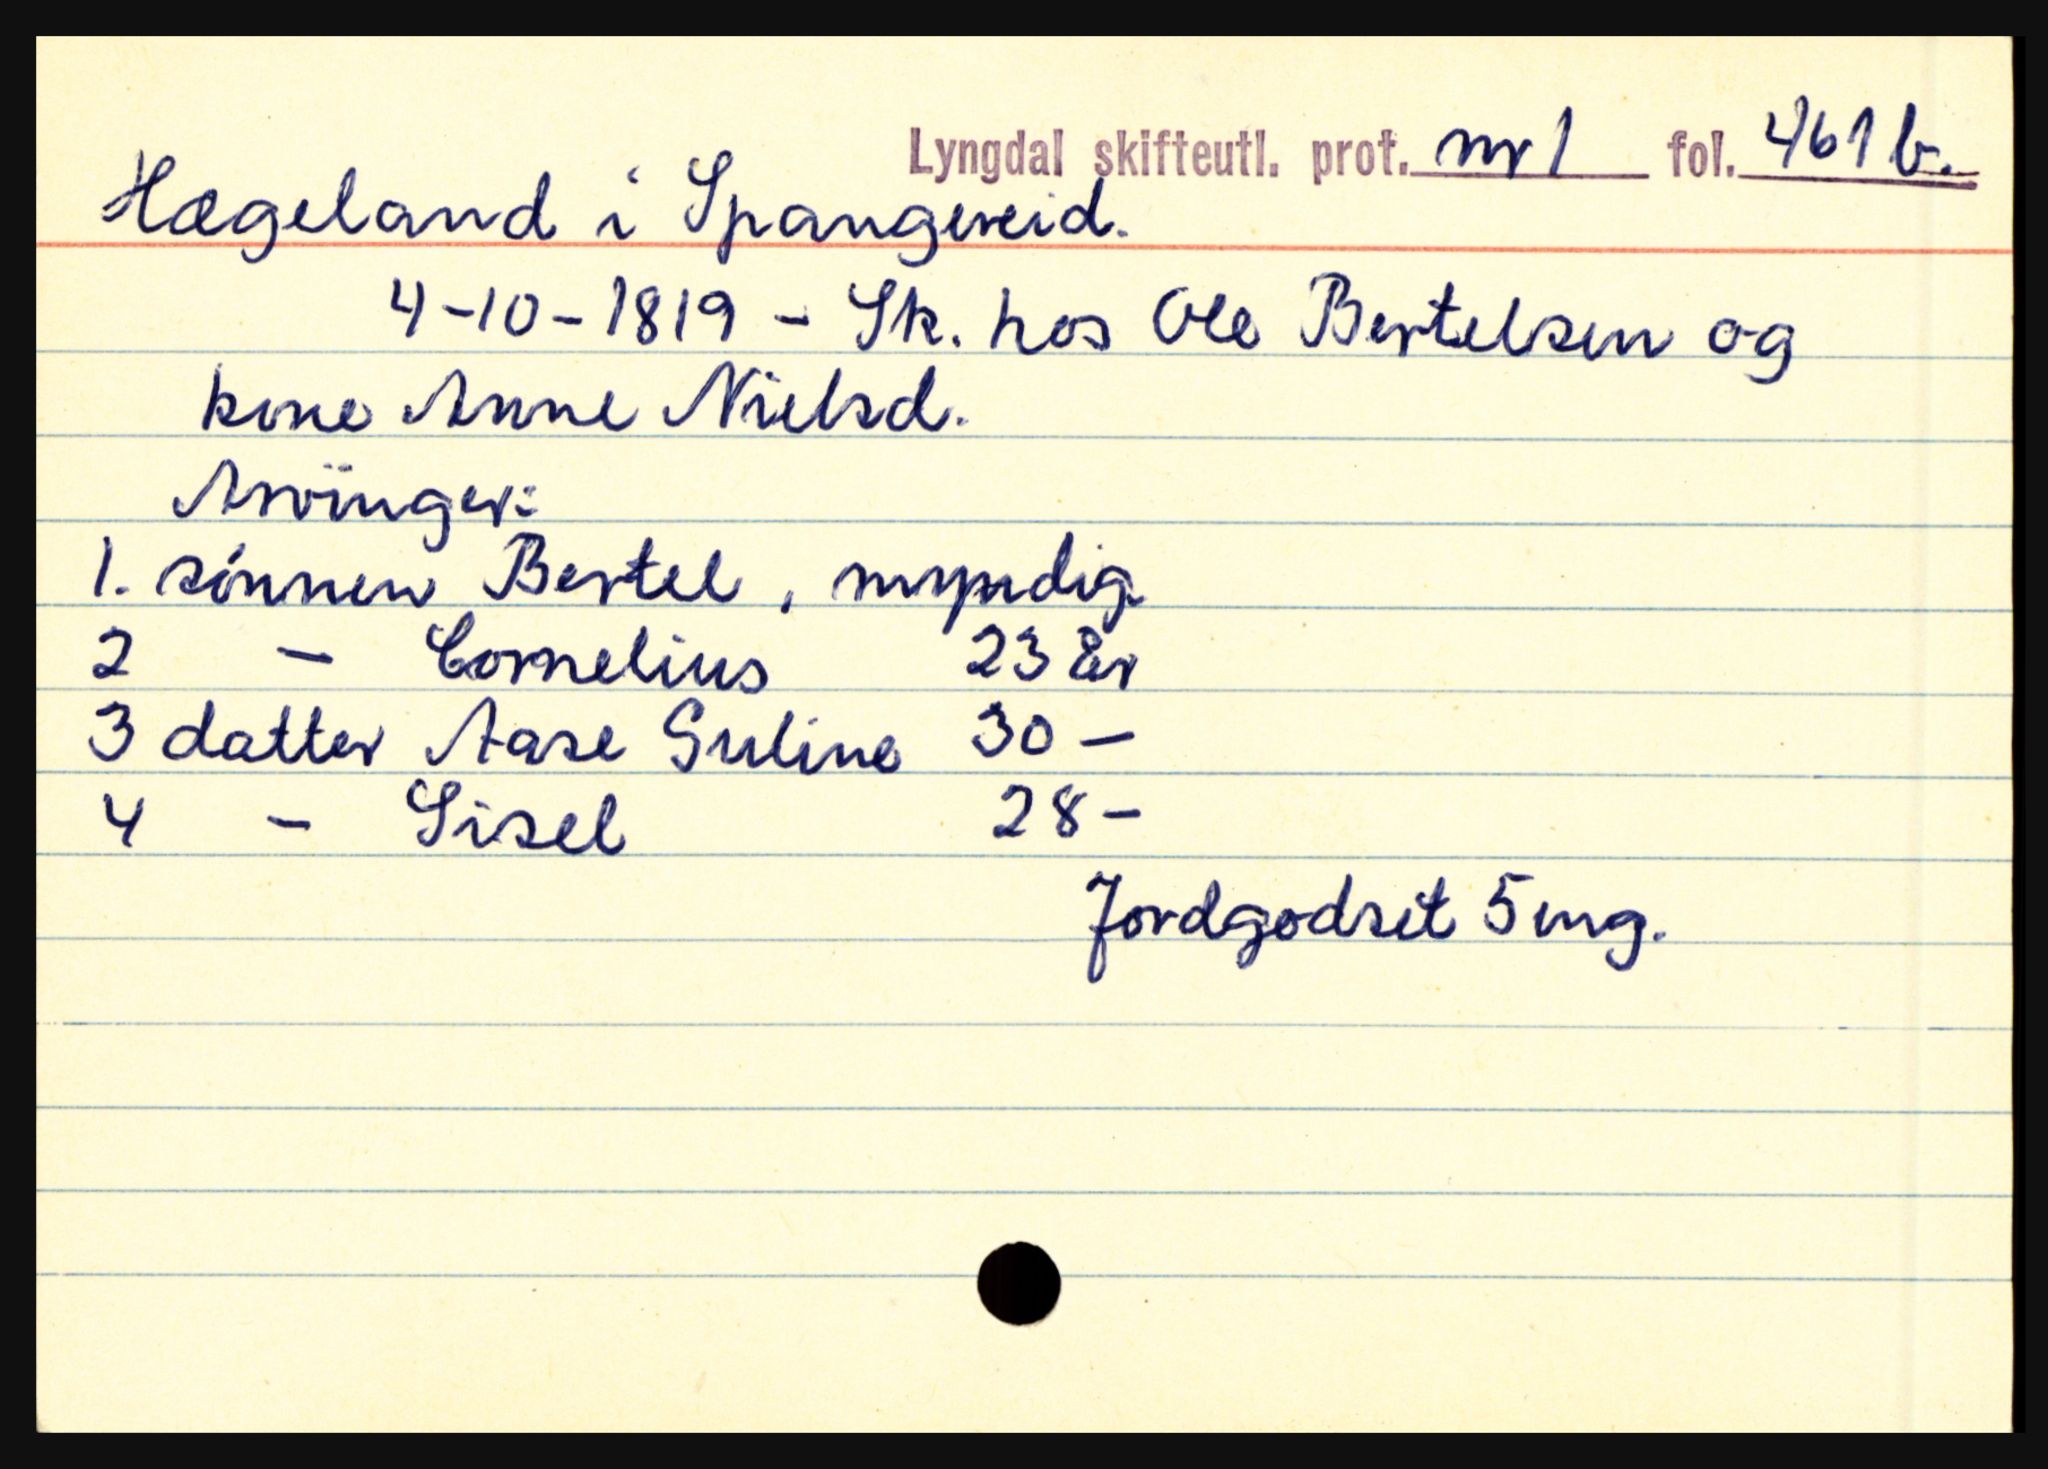 Lyngdal skifteutl. prot. nr 1 fol. 461 b.
Hægeland i Spangereid.
4-10-1819 - Sk. hos Ole Bertelsen og
kone Anne Nielsd.
Arvinger:
1. sönnen Bertel, myndig.
2 - Cornelius 23 år
3 datter Aase Guline 30 -
4 - Sisel 28 -
Jordgodset 5 mg.